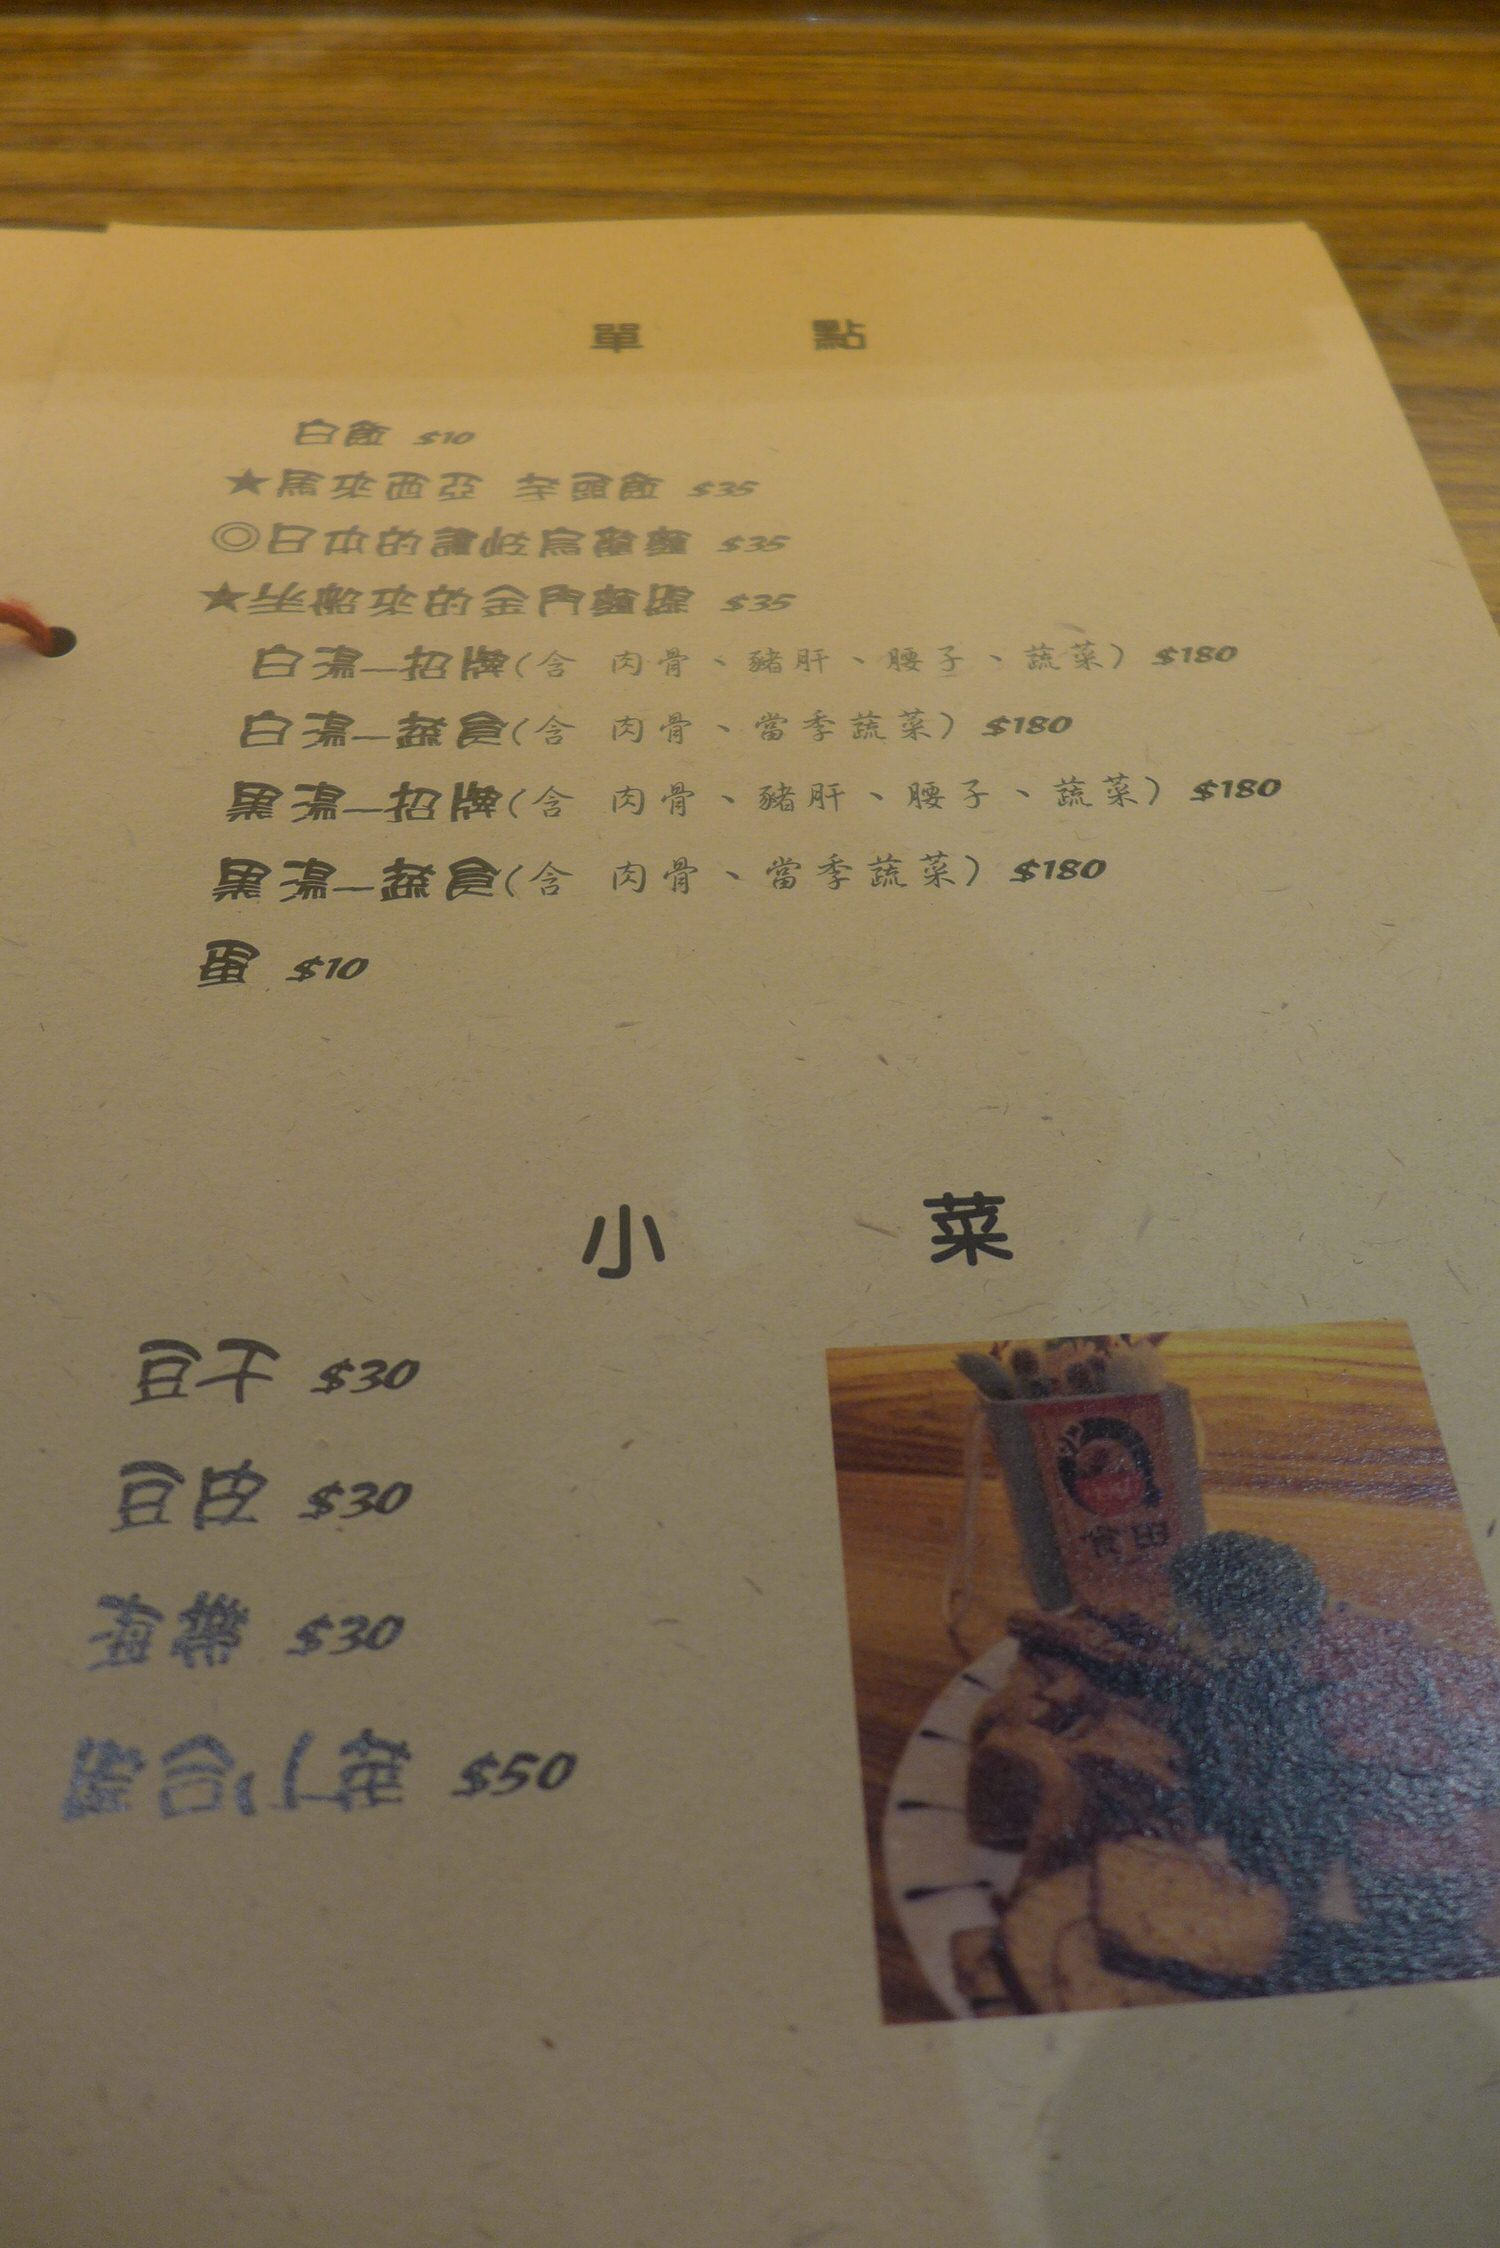 單 點
白飯 $10
★馬來西亞 芋頭飯 $35
◎日本的讚岐烏龍麵 $35
★坐船來的金門麵線 $35
白湯—招牌(含 肉骨、豬肝、腰子、蔬菜) $180
白湯—蔬食(含 肉骨、當季蔬菜) $180
黑湯—招牌(含 肉骨、豬肝、腰子、蔬菜) $180
黑湯—蔬食(含 肉骨、當季蔬菜) $180
蛋 $10
小 菜
豆干 $30
豆皮 $30
海帶 $30
綜合小菜 $50